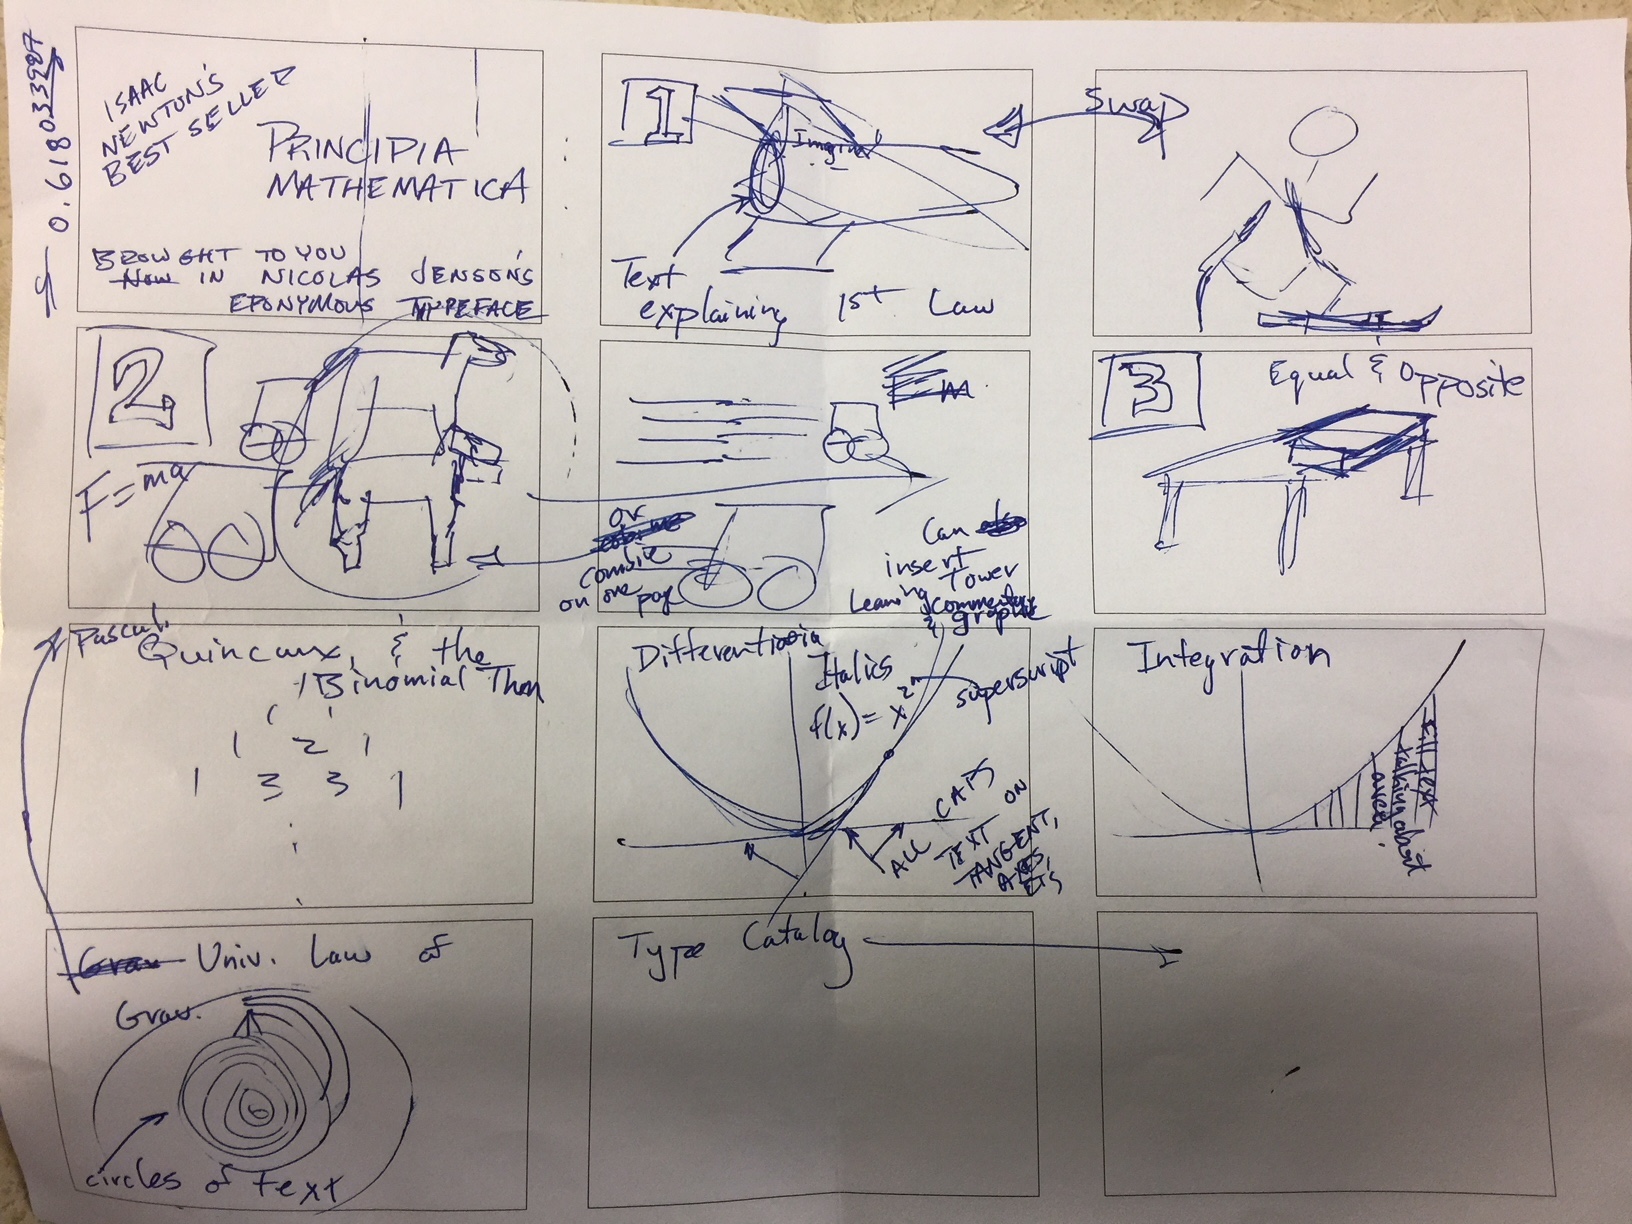 φ 0.618033987
ISAAC
NEWTON'S
BEST SELLER
PRINCIPIA
MATHEMATICA
BROUGHT TO YOU
IN NICOLAS JENSON'S
EPONYMOUS TYPEFACE
1
Text
explaining 1st Law
Swap
2
F=ma
m
or
combie
on one page
Can
insert
Leaning Tower
commentary
& graphic
3
Equal & Opposite
Pascal,
Quincunx, & the
Binomial Thm
1 1
1 2 1
1 3 3 1
Italics
f(x) = x²ⁿ
superscript
ALL CAPS ON
TEXT
TANGENT,
AXES,
ETC
Integration
fill text
talking about
area.
Univ. Law of
Grav.
circles of text
Type Catalog